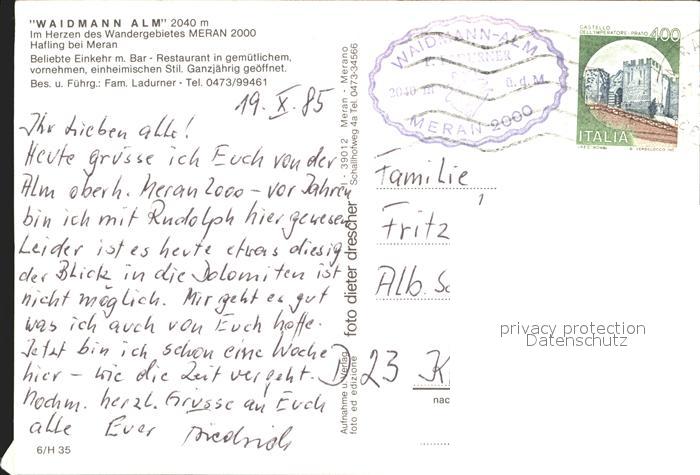 "WAIDMANN ALM" 2040 m
Im Herzen des Wandergebietes MERAN 2000
Hafling bei Meran
Beliebte Einkehr m. Bar - Restaurant in gemütlichem,
vornehmen, einheimischen Stil. Ganzjährig geöffnet.
Bes. u. Führg.: Fam. Ladurner - Tel. 0473/99461
19. X. 85
Ihr Lieben alle!
Heute grüsse ich Euch von der
Alm oberh. Meran 2000 - vor Jahren
bin ich mit Rudolph hier gewesen
Leider ist es heute etwas diesig -
der Blick in die Dolomiten ist
nicht möglich. Mir geht es gut
was ich auch von Euch hoffe.
Jetzt bin ich schon eine Woche
hier - wie die Zeit vergeht.
Nochm. herzl. Grüsse an Euch
alle Euer Friedrich
6/H 35
Aufnahme u. Verlag
foto ed edizione
foto dieter drescher
I - 39012 Meran - Merano
Schallhofweg 4a Tel. 0473-34566
WAIDMANN-ALM
LADURNER
2040 m ü.d.M
MERAN 2000
CASTELLO
DELL'IMPERATORE - PRATO
400
ITALIA
Familie
Fritz
Alb. Sc
D 23 K
nac
privacy protection
Datenschutz